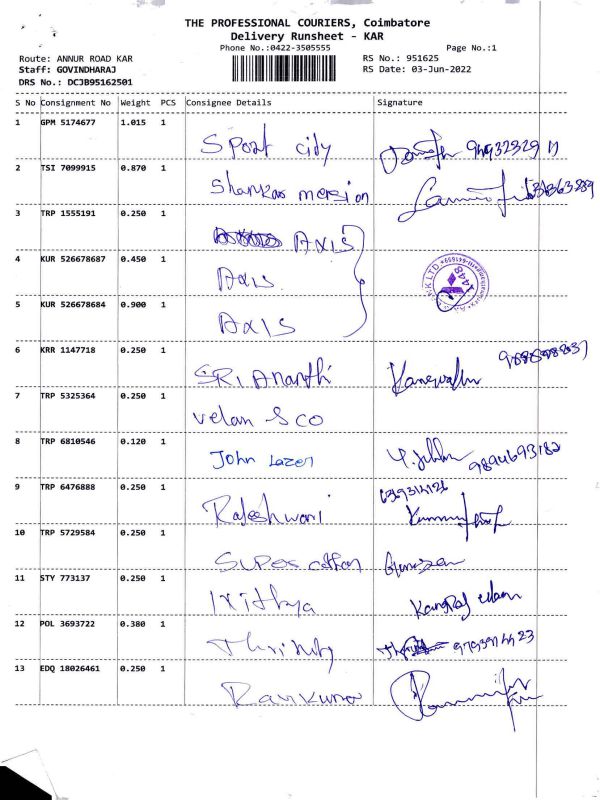 THE PROFESSIONAL COURIERS, Coimbatore
Delivery Runsheet - KAR
Phone No.:0422-3505555
Page No.:1
Route: ANNUR ROAD KAR
RS No.: 951625
Staff: GOVINDHARAJ
RS Date: 03-Jun-2022
DRS No.: DCJB95162501
S No Consignment No Weight PCS Consignee Details Signature
1 GPM 5174677 1.015 1
Sport city
2 TSI 7099915 0.870 1
Shankar mersion
3 TRP 1555191 0.250 1
AXIS
4 KUR 526678687 0.450 1
Axis
5 KUR 526678684 0.900 1
AXIS
6 KRR 1147718 0.250 1
SRI Ananthi
7 TRP 5325364 0.250 1
velan SCO
8 TRP 6810546 0.120 1
John Lazer
9894693182
9 TRP 6476888 0.250 1
Rajeshwari
10 TRP 5729584 0.250 1
Super cotton
11 STY 773137 0.250 1
Nithya
12 POL 3693722 0.380 1
13 EDQ 18026461 0.250 1
Ravikumar